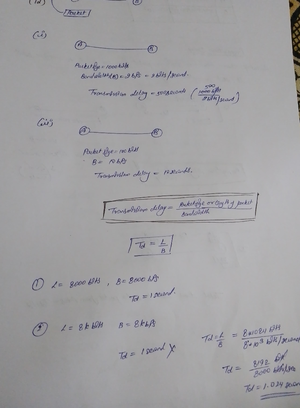 Packet
(ii)
A B
Packet size = 1000 bits
Bandwidth(B) = 2 bps = 2 bits/second
Transmission delay = 500 seconds (500 1000 bits / 2 bits/second)
(iii)
A B
B = 10 bps
Transmission delay = 10 second.
Transmission delay = Packet size or Length of packet / Bandwidth
Td = L / B
① L = 8000 bits, B = 8000 bps
Td = 1 second
② L = 8k bits B = 8k bps
Td = 1 second ×
Td = L / B = 8×1024 bits / 8×10³ bits/second
Td = 8192 bits / 8000 bits/sec
Td = 1.024 second